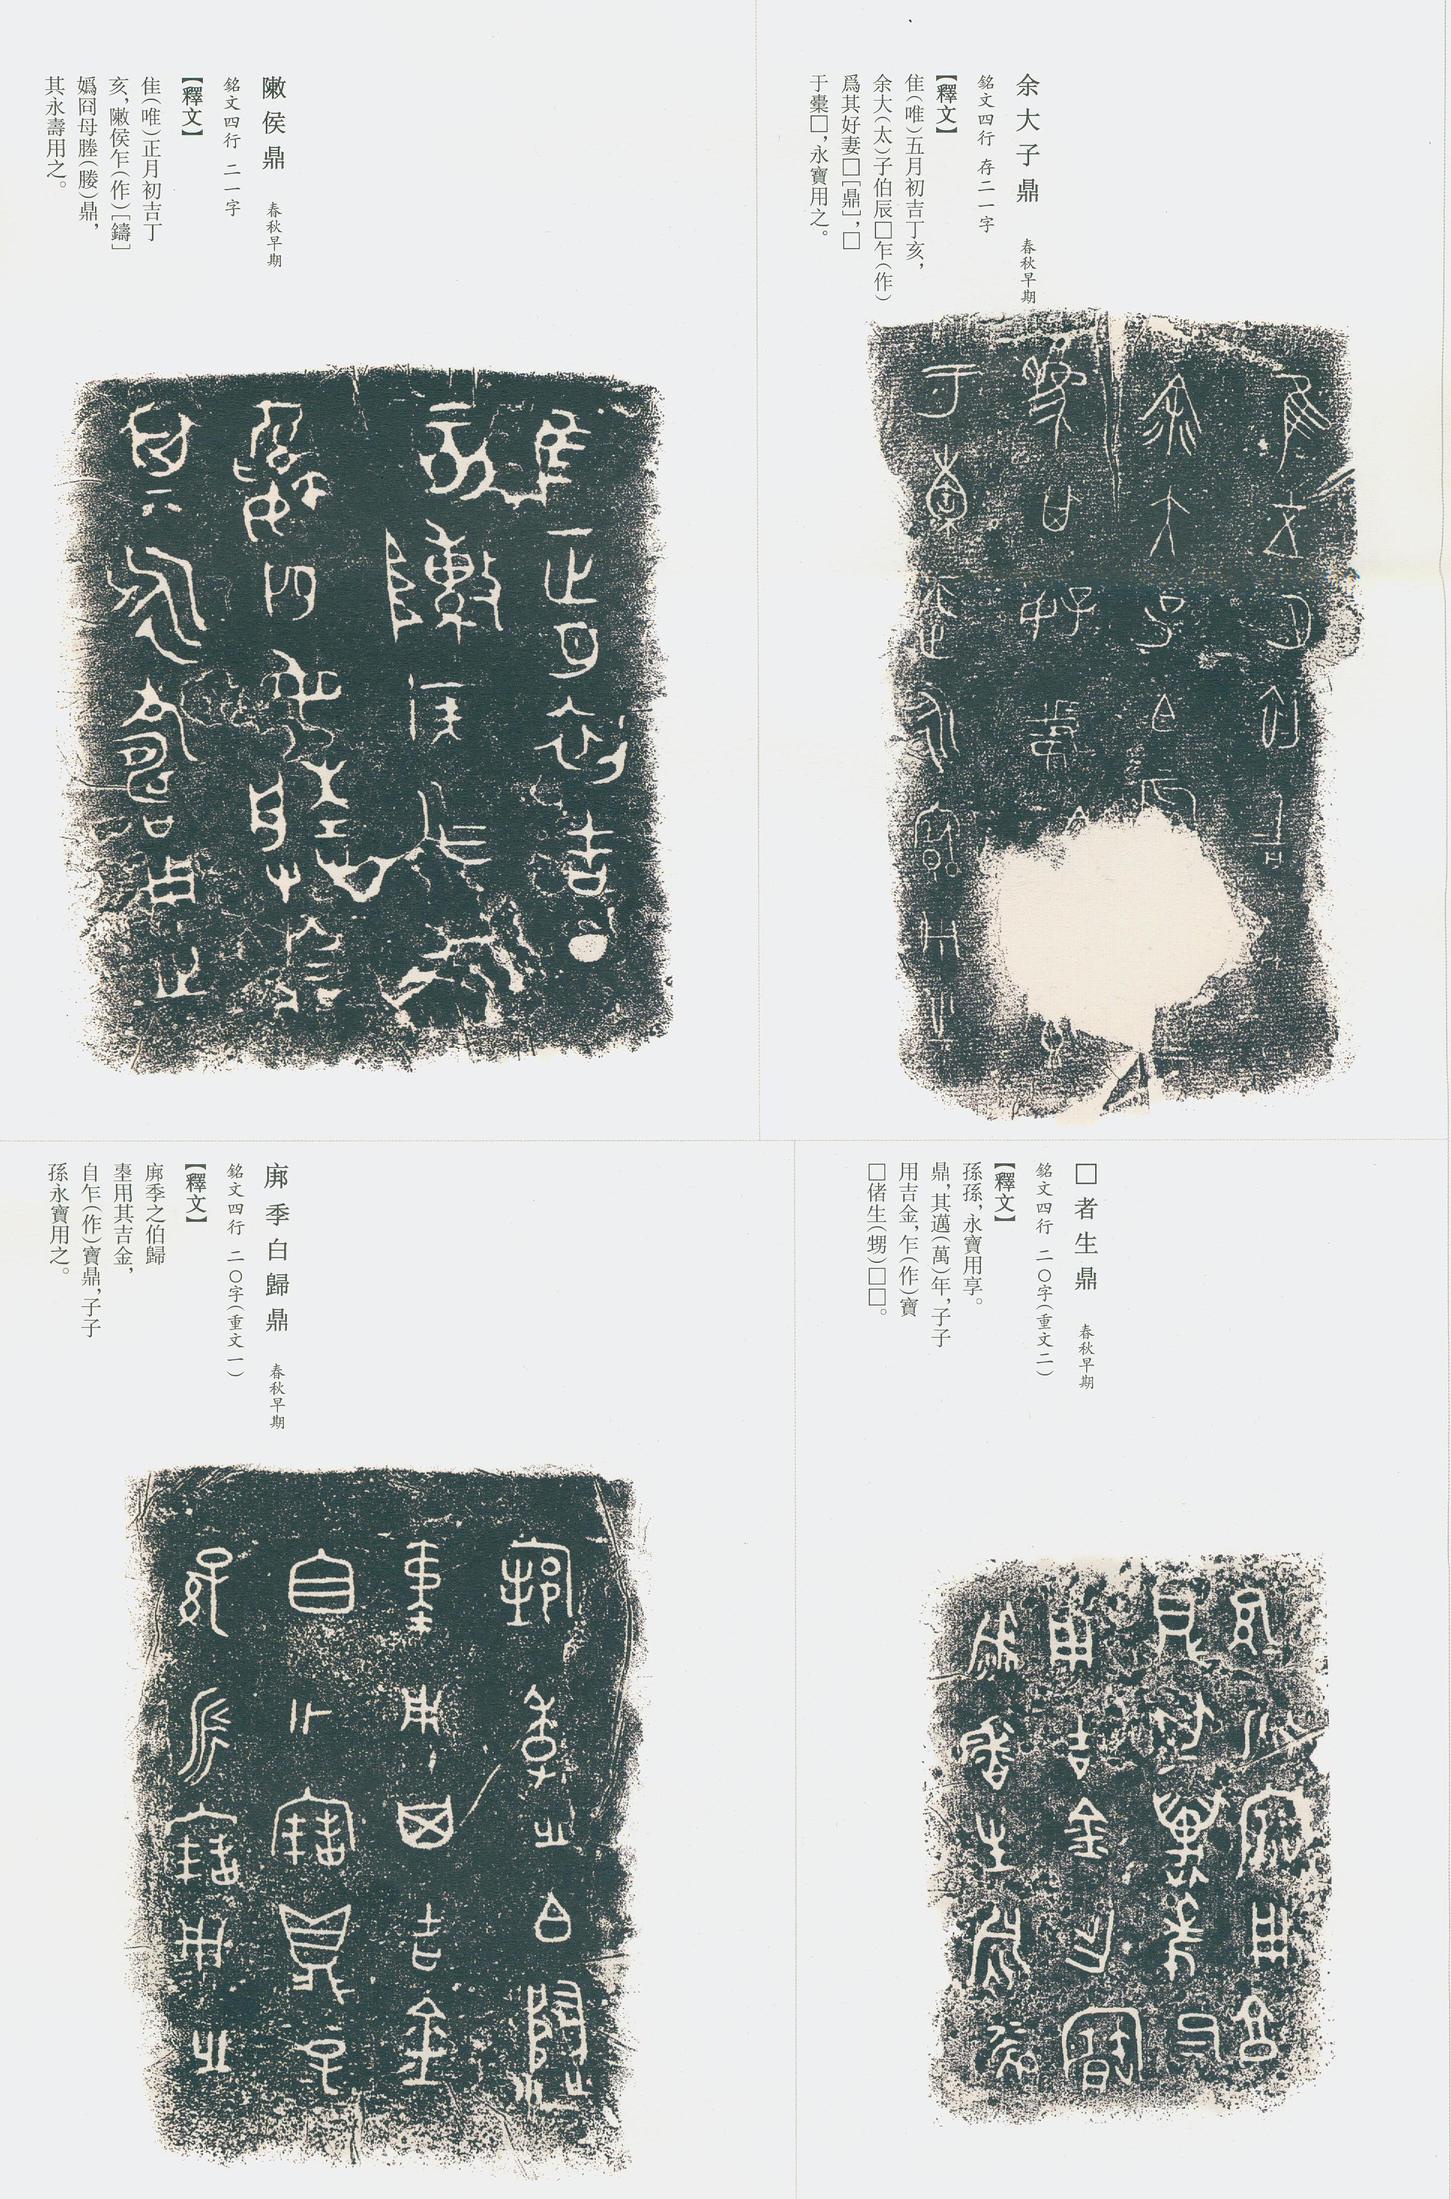 余大子鼎 春秋早期
銘文四行 存二一字
【釋文】
隹（唯）五月初吉丁亥，
余大（太）子伯辰□乍（作）
爲其好妻□［鼎］，□
于橐□，永寶用之。
敶侯鼎 春秋早期
銘文四行 二一字
【釋文】
隹（唯）正月初吉丁
亥，敶侯乍（作）［鑄］
嬀冏母媵（媵）鼎，
其永壽用之。
□者生鼎 春秋早期
銘文四行 二〇字（重文二）
【釋文】
孫孫，永寶用享。
鼎，其邁（萬）年，子子
用吉金，乍（作）寶
□偖生（甥）□□。
季白歸鼎 春秋早期
銘文四行 二〇字（重文一）
【釋文】
季之伯歸
用其吉金，
自乍（作）寶鼎，子子
孫永寶用之。